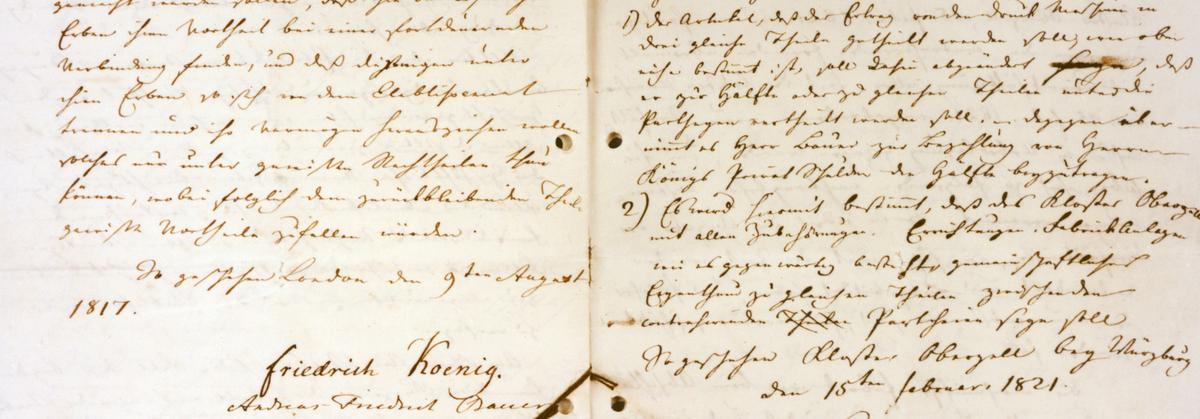 gemacht werden sollen, daß
Erben ihren Vortheil bei einer fortdauernden
Verbindung finden, und daß diejenigen unter
ihren Erben so sich von dem Etablissement
trennen und ihr Vermögen herausziehen wollen
solches nur unter gewissen Nachtheilen thun
können, wobei folglich dem zurückbleibenden Theile
gewisse Vortheile zufallen würden.
So geschehen London den 9ten August
1817.
Friedrich Koenig.
Andreas Friedrich Bauer
1) der Artickel, daß der Ertrag von den Druck Maschinen in
drei gleiche Theile getheilt werden soll, wie oben
bestimt ist, soll dahin abgeändert daß
er zur Hälfte oder zu gleichen Theilen unter die
Partheyen vertheilt werden soll dagegen über-
nimmt es Herr Bauer zur Bezahlung von Herrn
Königs Privat Schulden die Hälfte beyzutragen.
2) Es wird hiermit bestimmt, daß das Kloster Oberzell
mit allen Zubehörungen, Einrichtungen, Fabrickanlagen
wie es gegenwärtig besteht gemeinschaftliches
Eigenthum zu gleichen Theilen zwischen den
contrahirenden Theilen Partheien seyn soll
So geschehen Kloster Oberzell bey Würzburg
den 15ten Februar 1821.